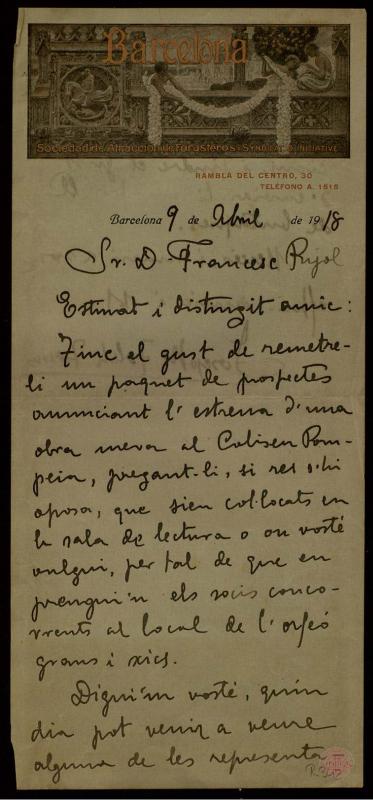 Barcelona
Sociedad de Atracción de Forasteros (Syndicat d'Initiative)
RAMBLA DEL CENTRO, 30
TELÉFONO A. 1515
Barcelona 9 de Abril de 1918
Sr. D. Francesc Pujol
Estimat i distingit amic:
Tinc el gust de remetre-
li un paquet de prospectes
anunciant l'estrena d'una
obra meva al Coliseu Pom-
peia, pregant-li, si res s'hi
oposa, que sien col·locats en
la sala de lectura o on vosté
vulgui, per tal de que en
prenguin els socis concor-
rrents al local de l'orfeó
grans i xics.
Digui'm vosté, quin
dia pot venir a veure
alguna de les representa